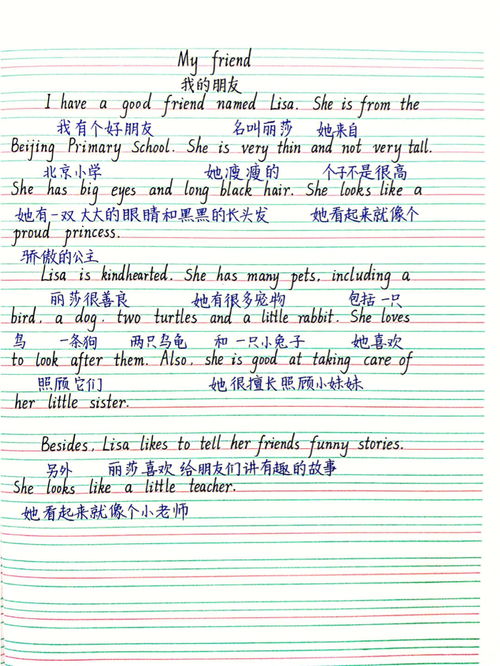 My friend
我的朋友
I have a good friend named Lisa. She is from the
我有个好朋友 名叫丽莎 她来自
Beijing Primary School. She is very thin and not very tall.
北京小学 她瘦瘦的 个子不是很高
She has big eyes and long black hair. She looks like a
她有一双大大的眼睛和黑黑的长头发 她看起来就像个
proud princess.
骄傲的公主
Lisa is kindhearted. She has many pets, including a
丽莎很善良 她有很多宠物 包括一只
bird, a dog, two turtles and a little rabbit. She loves
鸟 一条狗 两只乌龟 和 一只小兔子 她喜欢
to look after them. Also, she is good at taking care of
照顾它们 她很擅长照顾小妹妹
her little sister.
Besides, Lisa likes to tell her friends funny stories.
另外 丽莎喜欢给朋友们讲有趣的故事
She looks like a little teacher.
她看起来就像个小老师